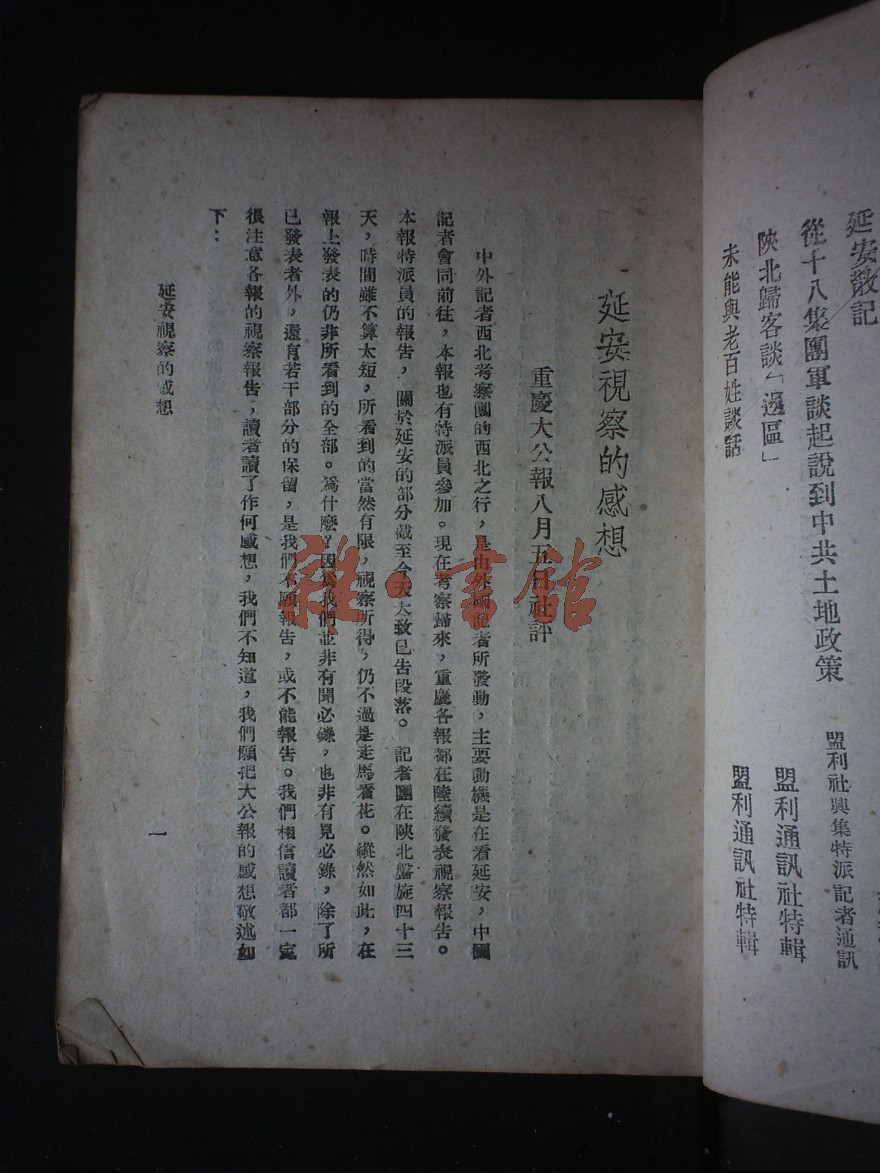 延安散記
從十八集團軍談起說到中共土地政策
盟利社興集特派記者通訊
陝北歸客談「邊區」
盟利通訊社特輯
未能與老百姓談話
盟利通訊社特輯
延安視察的感想
重慶大公報八月五日社評
中外記者西北考察團的西北之行，是由外國記者所發動，主要動機是在看延安，中國
記者會同前往，本報也有特派員參加。現在考察歸來，重慶各報都在陸續發表視察報告。
本報特派員的報告，關於延安的部分截至今天大致已告段落。記者團在陝北盤旋四十三
天，時間雖不算太短，所看到的當然有限，視察所得，仍不過是走馬看花。縱然如此，在
報上發表的仍非所看到的全部。爲什麼？因爲我們並非有聞必錄，也非有見必錄，除了所
已發表者外，還有若干部分的保留，是我們不願報告，或不能報告。我們相信讀者都一定
很注意各報的視察報告，讀者讀了作何感想，我們不知道，我們願把大公報的感想敬述如
下：
延安視察的感想
一
雜·書館